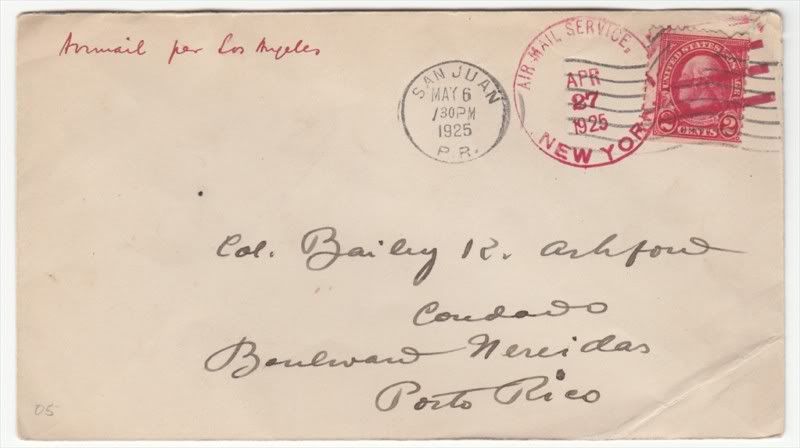 Airmail per Los Angeles
SAN JUAN
MAY 6
130PM
1925
P.R.
AIR MAIL SERVICE,
APR
27
1925
NEW YORK,
UNITED STATES POSTAGE
2 CENTS 2
Col. Bailey K. Ashford
Condado
Boulevard Nereidas
Porto Rico
05